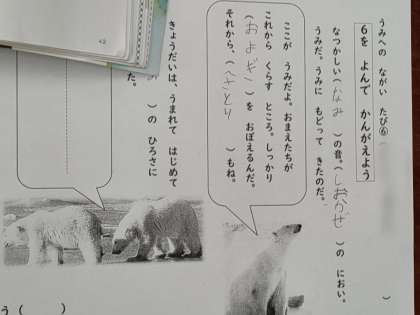 うみへの ながい たび⑥
6を よんで かんがえよう
なつかしい(なみ)の音。(しおかぜ)の におい。
うみだ。うみに もどって きたのだ。
ここが うみだよ。おまえたちが
これから くらす ところ。しっかり
(およぎ)を おぼえるんだ。
それから、( さとり)もね。
きょうだいは、うまれて はじめて
)の ひろさに
た。
う( )
42